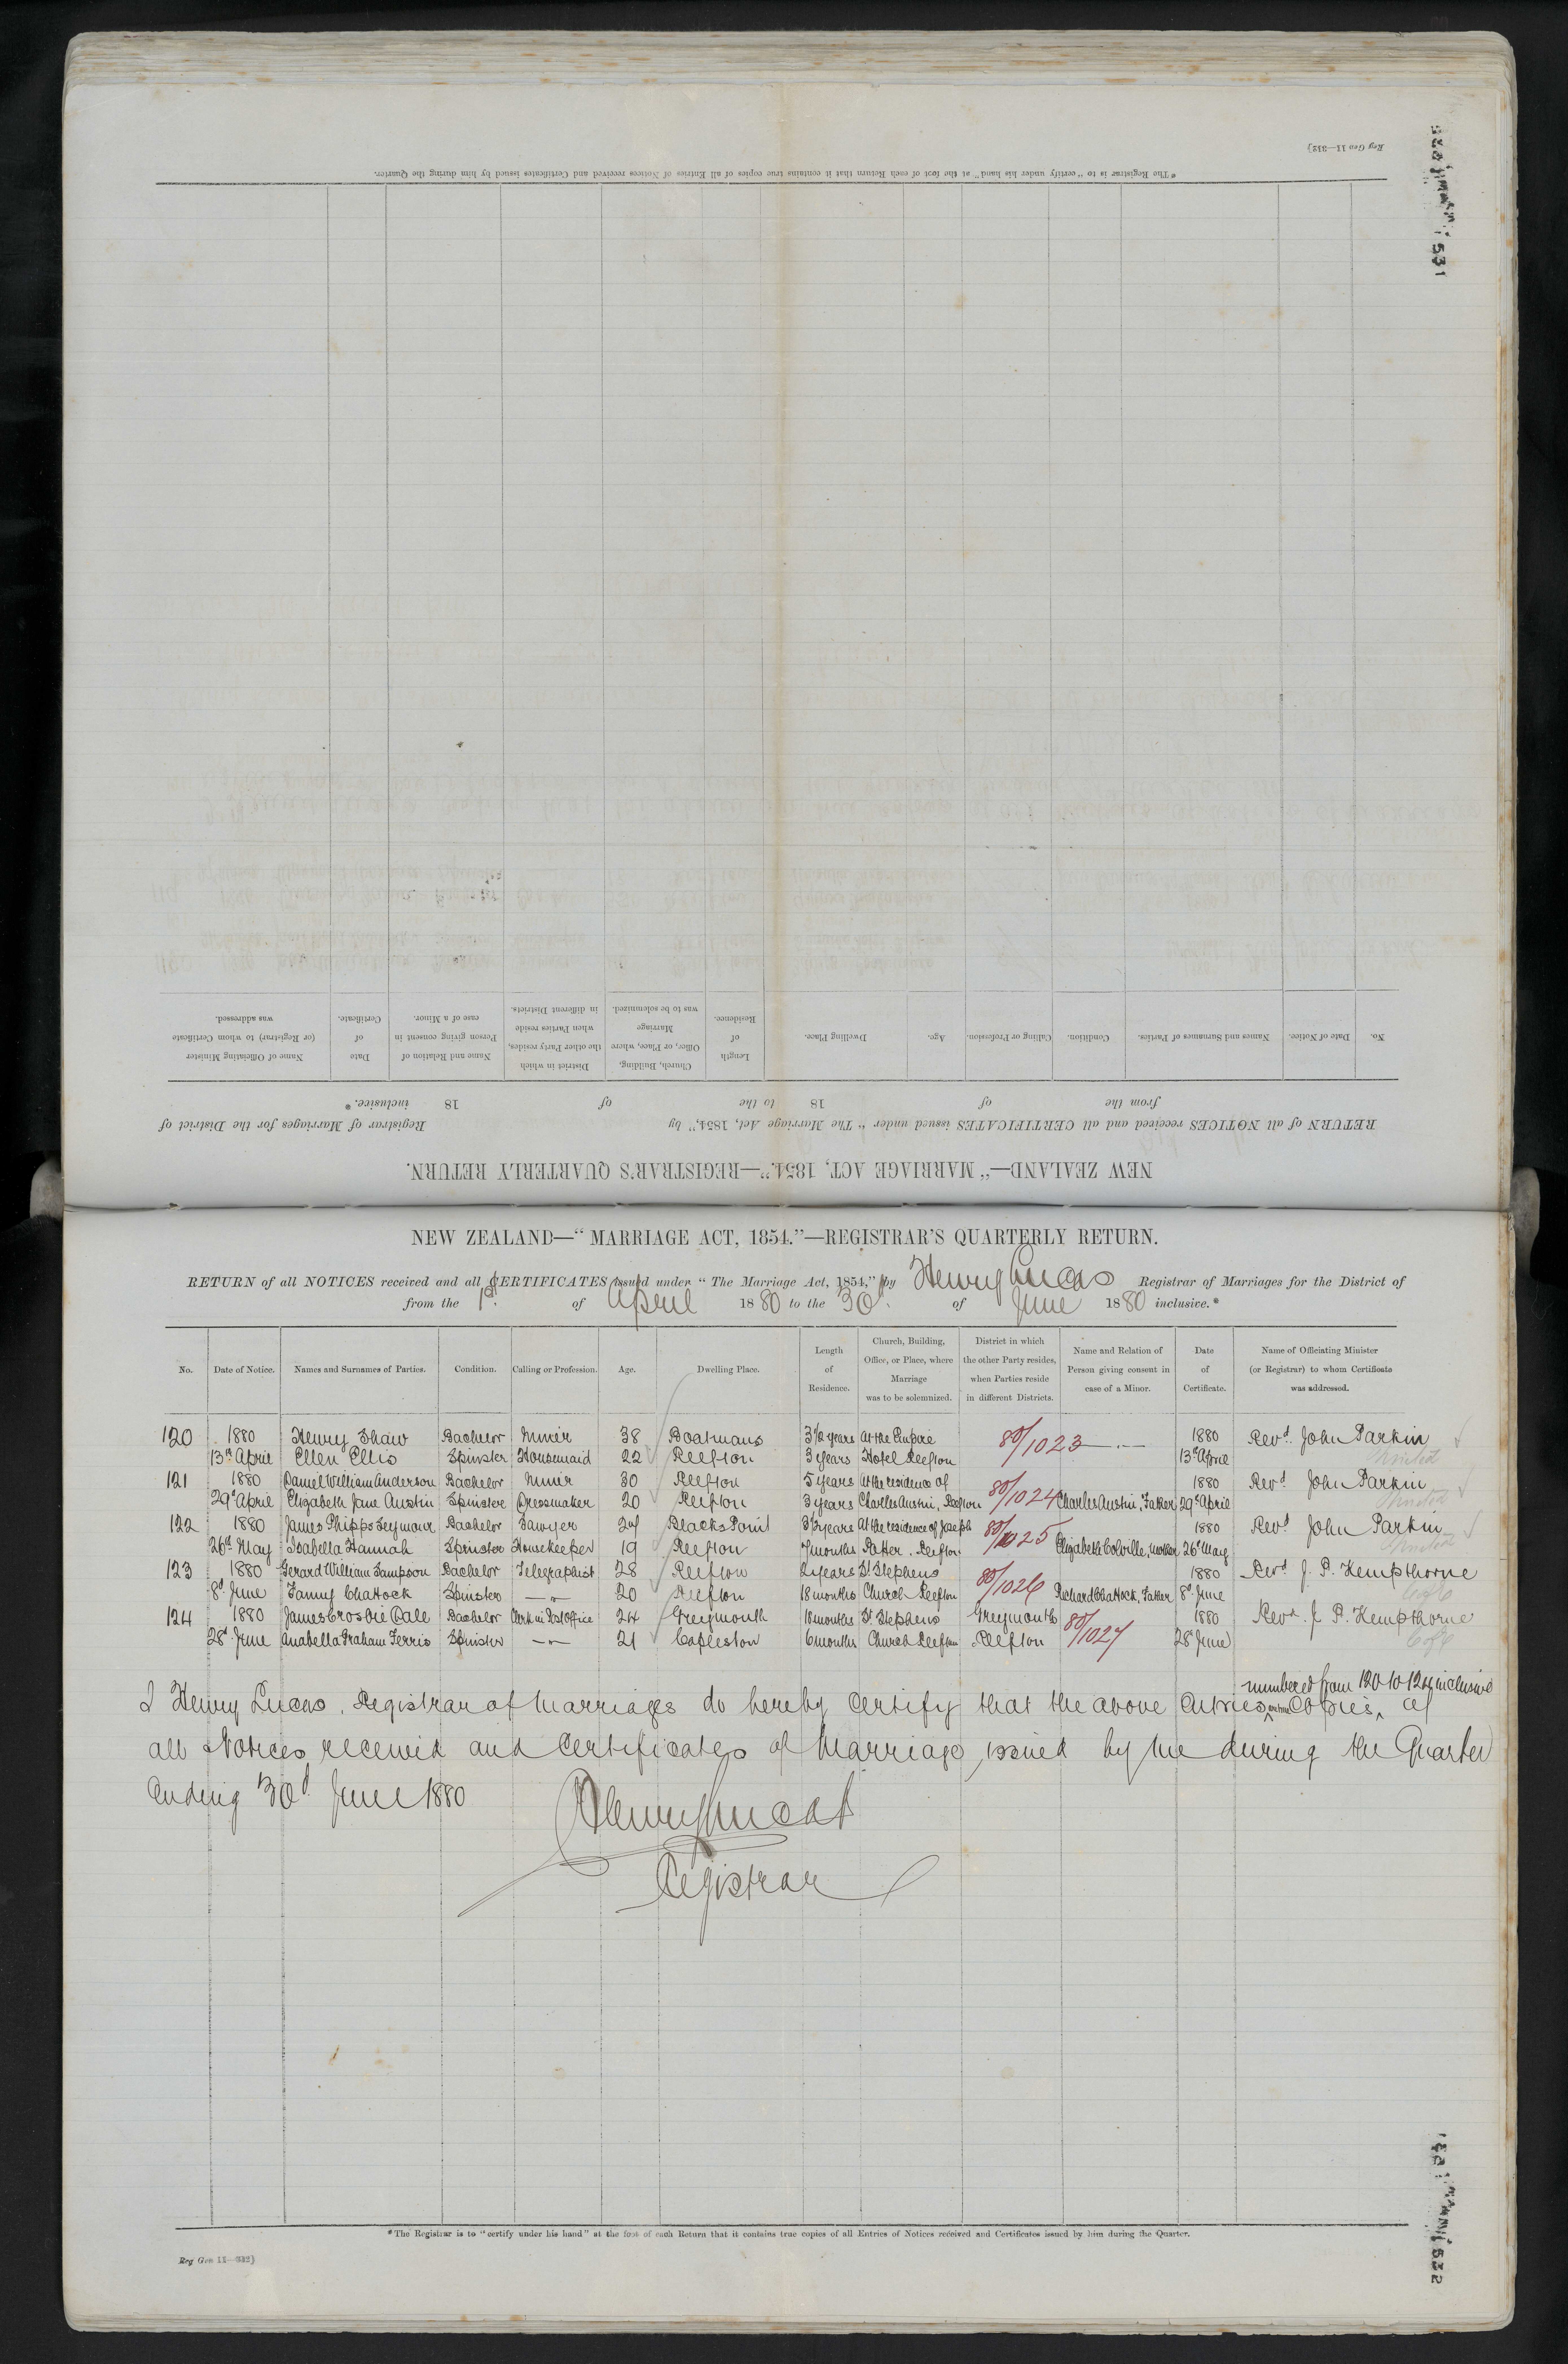 Reg Gen 11—312}
*The Registrar is to "certify under his hand" at the foot of each Return that it contains true copies of all Entries of Notices received and Certificates issued by him during the Quarter.
No. Date of Notice. Names and Surnames of Parties. Condition. Calling or Profession. Age. Dwelling Place. Length of Residence. Church, Building, Office, or Place, where Marriage was to be solemnized. District in which the other Party resides, when Parties reside in different Districts. Name and Relation of Person giving consent in case of a Minor. Date of Certificate. Name of Officiating Minister (or Registrar) to whom Certificate was addressed.
from the of 18 to the of 18 inclusive.*
RETURN of all NOTICES received and all CERTIFICATES issued under "The Marriage Act, 1854," by Registrar of Marriages for the District of
NEW ZEALAND—"MARRIAGE ACT, 1854."—REGISTRAR'S QUARTERLY RETURN.
NEW ZEALAND—"MARRIAGE ACT, 1854."—REGISTRAR'S QUARTERLY RETURN.
RETURN of all NOTICES received and all CERTIFICATES issued under "The Marriage Act, 1854," by Henry Lucas Registrar of Marriages for the District of
from the 1st of April 1880 to the 30th of June 1880 inclusive.*
No. Date of Notice. Names and Surnames of Parties. Condition. Calling or Profession. Age. Dwelling Place. Length of Residence. Church, Building, Office, or Place, where Marriage was to be solemnized. District in which the other Party resides, when Parties reside in different Districts. Name and Relation of Person giving consent in case of a Minor. Date of Certificate. Name of Officiating Minister (or Registrar) to whom Certificate was addressed.
120 1880 Henry Shaw Bachelor Miner 38 Boatmans 3½ years At the Empire 80/1023 —.— 1880 Revd. John Parkin
13th April Ellen Ellis Spinster Housemaid 22 Reefton 3 years Hotel Reefton 13th April
121 1880 Daniel William Anderson Bachelor Miner 30 Reefton 5 years At the residence of 80/1024 1880 Revd John Parkin
29th April Elizabeth Jane Austin Spinster Dressmaker 20 Reefton 3 years Charles Austin, Reefton Charles Austin, Father 29th April
122 1880 James Phipps Seymour Bachelor Sawyer 24 Blacks Point 3½ years At the residence of Joseph 80/1025 1880 Revd John Parkin
26th May Isabella Hannah Spinster Housekeeper 19 Reefton 7 months Patter. Reefton Elizabeth Colville, Mother 26th May
123 1880 Gerard William Sampson Bachelor Telegraphist 28 Reefton 2 years St Stephens 80/1026 1880 Revd J. P. Kempthorne
8th June Fanny Chattock Spinster —"— 20 Reefton 18 months Church Reefton Richard Chattock, Father 8th June
124 1880 James Crosbie Cale Bachelor Clerk in Post Office 24 Greymouth 18 months St. Stephens Greymouth 80/1027 1880 Revd. J. P. Kempthorne
28th June Anabella Graham Ferris Spinster —"— 21 Capleston 6 months Church Reefton Reefton 28th June
numbered from 120 to 124 inclusive
I Henry Lucas, Registrar of Marriages do hereby certify that the above Entries are true Copies of
all Notices received and Certificates of Marriage issued by me during the Quarter
Ending 30th June 1880
Henry Lucas
Registrar
*The Registrar is to "certify under his hand" at the foot of each Return that it contains true copies of all Entries of Notices received and Certificates issued by him during the Quarter.
Reg Gen 11—312}